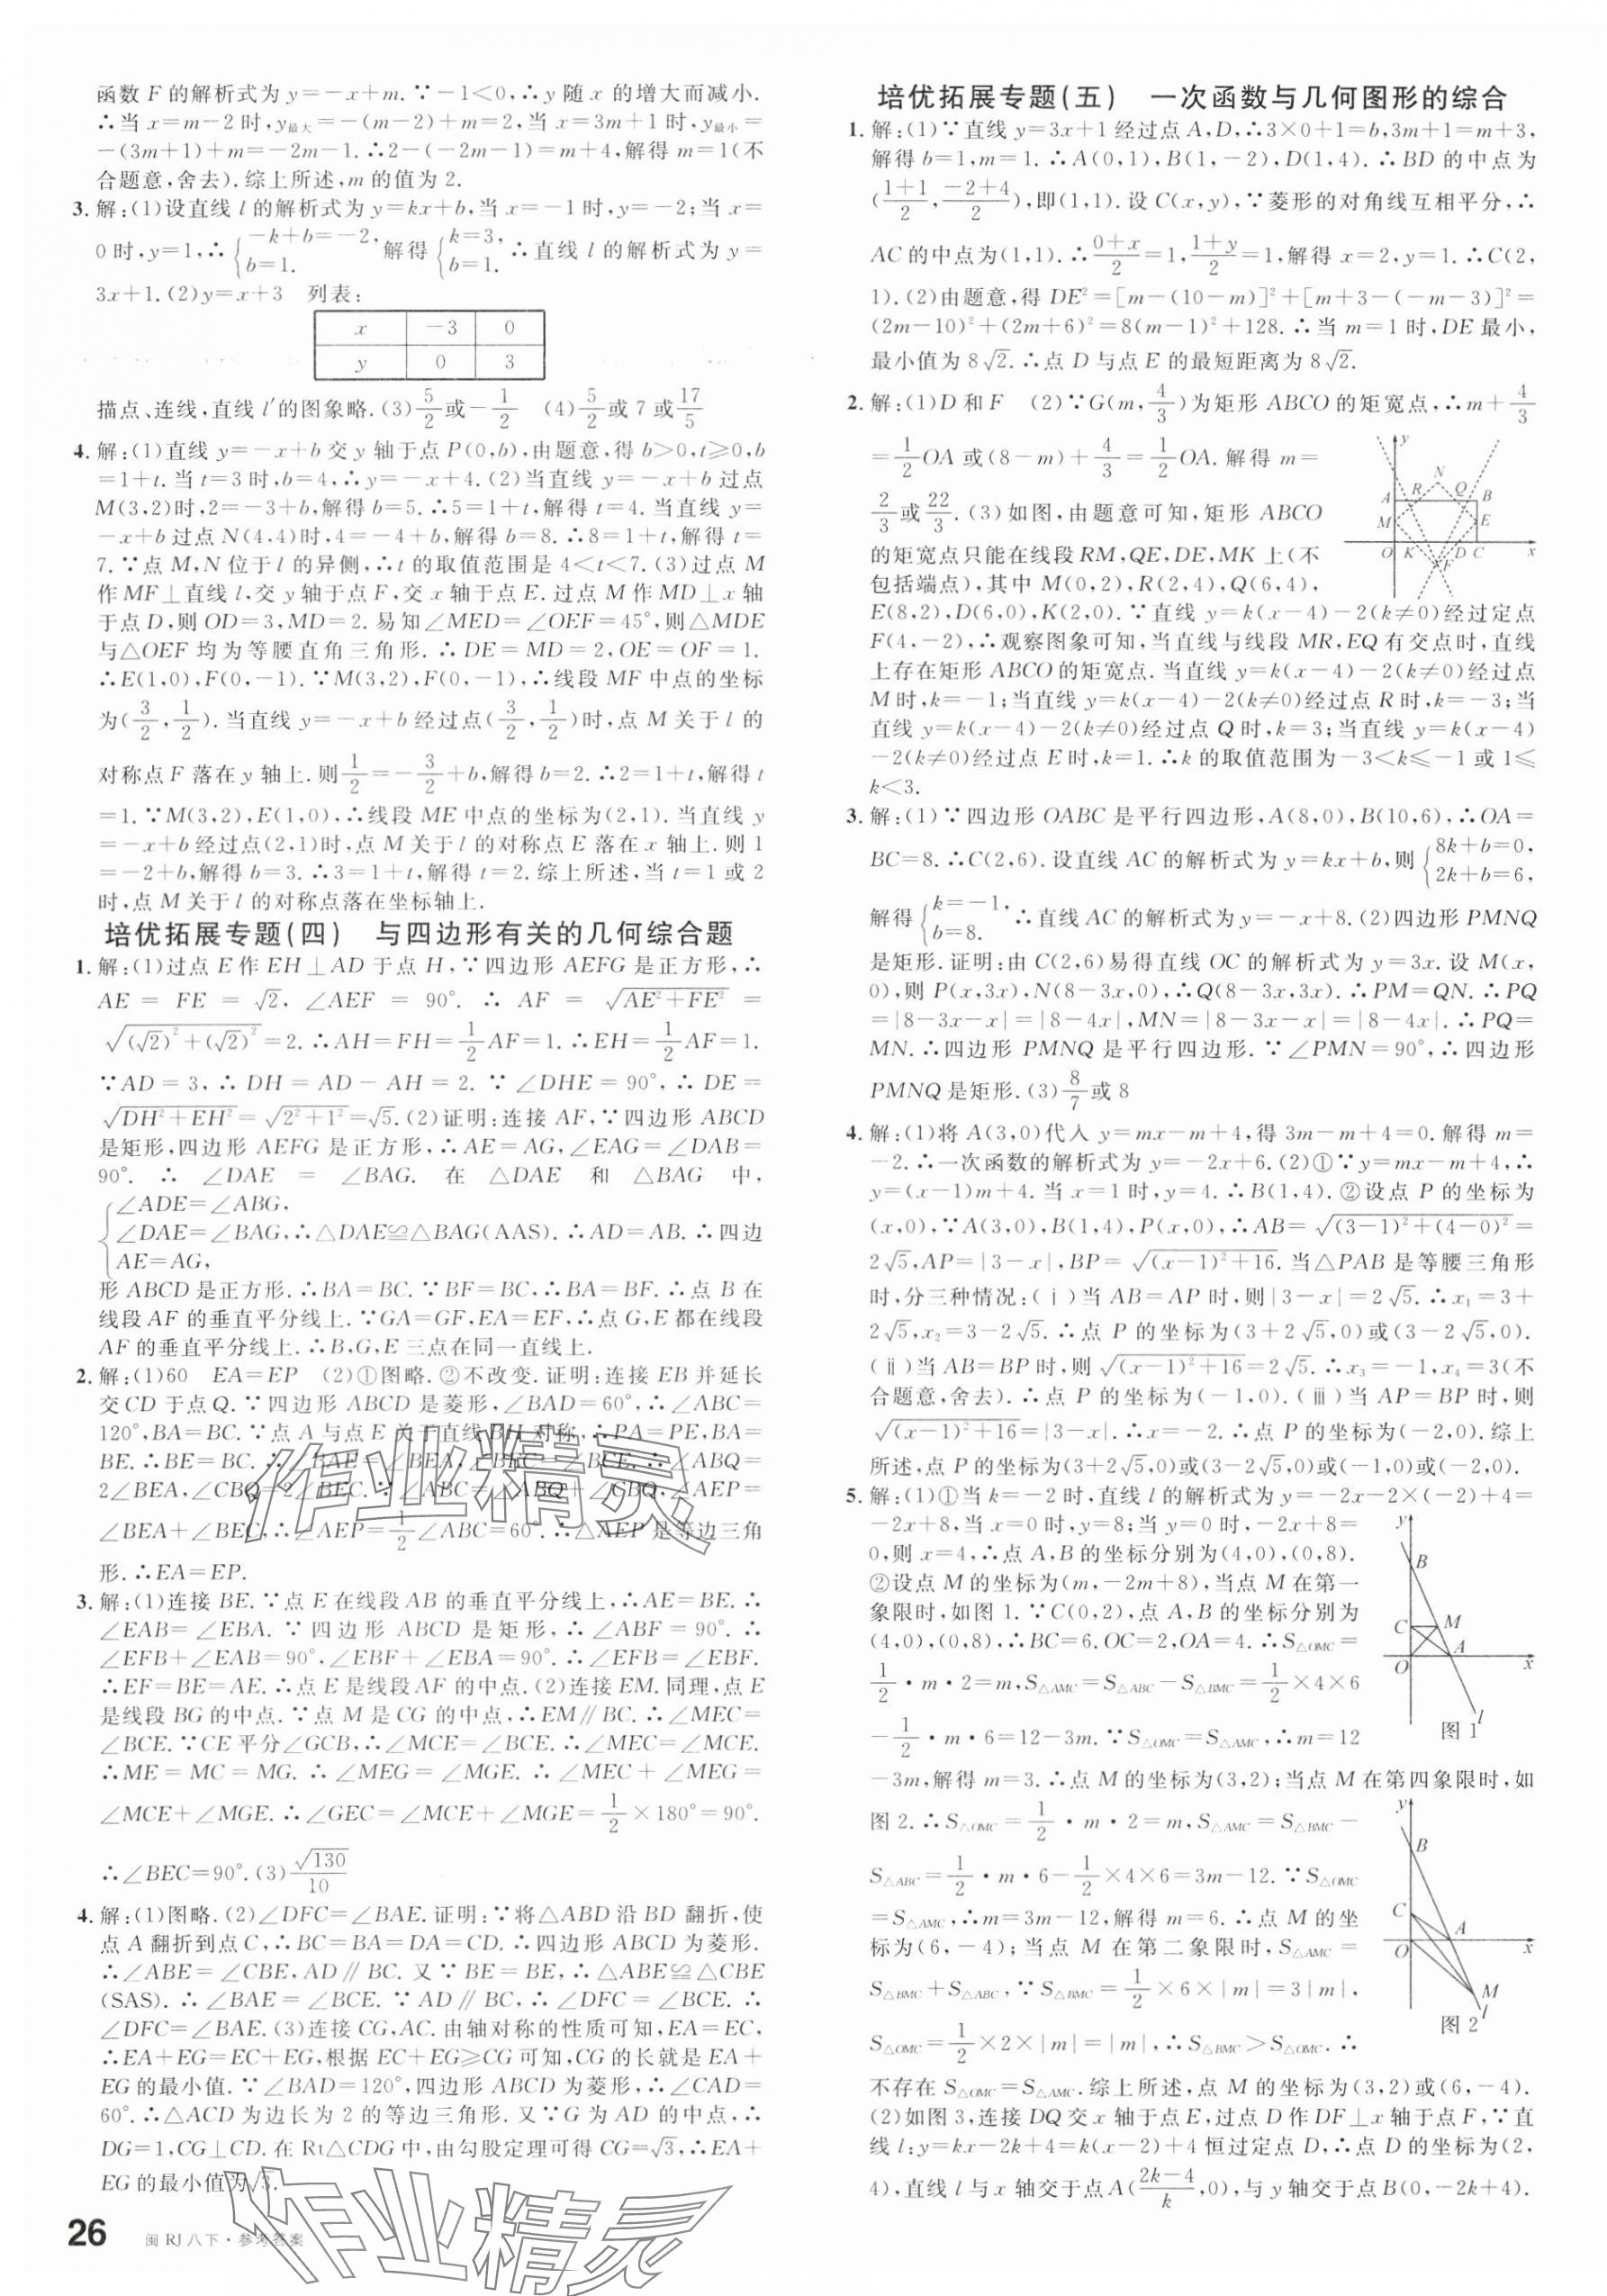 函数 F 的解析式为 y=-x+m. ∵-1<0,∴y 随 x 的增大而减小.
∴当 x=m-2 时,y最大=-(m-2)+m=2,当 x=3m+1 时,y最小=
-(3m+1)+m=-2m-1. ∴2-(-2m-1)=m+4,解得 m=1(不
合题意,舍去). 综上所述,m 的值为 2.
3. 解:(1)设直线 l 的解析式为 y=kx+b,当 x=-1 时,y=-2;当 x=
0 时,y=1,∴{-k+b=-2, b=1. 解得{k=3, b=1. ∴直线 l 的解析式为 y=
3x+1. (2)y=x+3 列表:
x -3 0
y 0 3
描点、连线,直线 l′的图象略. (3)5/2或-1/2 (4)5/2或 7 或17/5
4. 解:(1)直线 y=-x+b 交 y 轴于点 P(0,b),由题意,得 b>0,t≥0,b
=1+t. 当 t=3 时,b=4,∴y=-x+4. (2)当直线 y=-x+b 过点
M(3,2)时,2=-3+b,解得 b=5. ∴5=1+t,解得 t=4. 当直线 y=
-x+b 过点 N(4,4)时,4=-4+b,解得 b=8. ∴8=1+t,解得 t=
7. ∵点 M,N 位于 l 的异侧,∴t 的取值范围是 4<t<7. (3)过点 M
作 MF⊥直线 l,交 y 轴于点 F,交 x 轴于点 E. 过点 M 作 MD⊥x 轴
于点 D,则 OD=3,MD=2. 易知∠MED=∠OEF=45°,则△MDE
与△OEF 均为等腰直角三角形. ∴DE=MD=2,OE=OF=1.
∴E(1,0),F(0,-1). ∵M(3,2),F(0,-1),∴线段 MF 中点的坐标
为(3/2,1/2). 当直线 y=-x+b 经过点(3/2,1/2)时,点 M 关于 l 的
对称点 F 落在 y 轴上. 则1/2=-3/2+b,解得 b=2. ∴2=1+t,解得 t
=1. ∵M(3,2),E(1,0),∴线段 ME 中点的坐标为(2,1). 当直线 y
=-x+b 经过点(2,1)时,点 M 关于 l 的对称点 E 落在 x 轴上. 则 1
=-2+b,解得 b=3. ∴3=1+t,解得 t=2. 综上所述,当 t=1 或 2
时,点 M 关于 l 的对称点落在坐标轴上.
培优拓展专题(四) 与四边形有关的几何综合题
1. 解:(1)过点 E 作 EH⊥AD 于点 H,∵四边形 AEFG 是正方形,∴
AE = FE = √2, ∠AEF = 90°. ∴ AF = √(AE²+FE²) =
√((√2)²+(√2)²)=2. ∴AH=FH=1/2AF=1. ∴EH=1/2AF=1.
∵AD=3,∴DH=AD-AH=2. ∵∠DHE=90°,∴DE=
√(DH²+EH²)=√(2²+1²)=√5. (2)证明:连接 AF,∵四边形 ABCD
是矩形,四边形 AEFG 是正方形,∴AE=AG,∠EAG=∠DAB=
90°. ∴ ∠DAE = ∠BAG. 在 △DAE 和 △BAG 中,
{∠ADE=∠ABG,
∠DAE=∠BAG,∴△DAE≌△BAG(AAS). ∴AD=AB. ∴四边
AE=AG,
形 ABCD 是正方形. ∴BA=BC. ∵BF=BC,∴BA=BF. ∴点 B 在
线段 AF 的垂直平分线上. ∵GA=GF,EA=EF,∴点 G,E 都在线段
AF 的垂直平分线上. ∴B,G,E 三点在同一直线上.
2. 解:(1)60 EA=EP (2)①图略. ②不改变. 证明:连接 EB 并延长
交 CD 于点 Q. ∵四边形 ABCD 是菱形,∠BAD=60°,∴∠ABC=
120°,BA=BC. ∵点 A 与点 E 关于直线 BH 对称,∴PA=PE,BA=
BE. ∴BE=BC. ∴∠BAE=∠BEA,∠BEC=∠BCE. ∴∠ABQ=
2∠BEA,∠CBQ=2∠BEC. ∴∠ABC=∠ABQ+∠CBQ,∠AEP=
∠BEA+∠BEC,∴∠AEP=1/2∠ABC=60°. ∴△AEP 是等边三角
形. ∴EA=EP.
3. 解:(1)连接 BE. ∵点 E 在线段 AB 的垂直平分线上,∴AE=BE. ∴
∠EAB=∠EBA. ∵四边形 ABCD 是矩形,∴∠ABF=90°. ∴
∠EFB+∠EAB=90°,∠EBF+∠EBA=90°. ∴∠EFB=∠EBF.
∴EF=BE=AE. ∴点 E 是线段 AF 的中点. (2)连接 EM. 同理,点 E
是线段 BG 的中点. ∵点 M 是 CG 的中点,∴EM∥BC. ∴∠MEC=
∠BCE. ∵CE 平分∠GCB,∴∠MCE=∠BCE. ∴∠MEC=∠MCE.
∴ME=MC=MG. ∴∠MEG=∠MGE. ∴∠MEC+∠MEG=
∠MCE+∠MGE. ∴∠GEC=∠MCE+∠MGE=1/2×180°=90°.
∴∠BEC=90°. (3)√130/10
4. 解:(1)图略. (2)∠DFC=∠BAE. 证明:∵将△ABD 沿 BD 翻折,使
点 A 翻折到点 C,∴BC=BA=DA=CD. ∴四边形 ABCD 为菱形.
∴∠ABE=∠CBE,AD∥BC. 又∵BE=BE,∴△ABE≌△CBE
(SAS). ∴∠BAE=∠BCE. ∵AD∥BC,∴∠DFC=∠BCE. ∴
∠DFC=∠BAE. (3)连接 CG,AC. 由轴对称的性质可知,EA=EC,
∴EA+EG=EC+EG,根据 EC+EG≥CG 可知,CG 的长就是 EA+
EG 的最小值. ∵∠BAD=120°,四边形 ABCD 为菱形,∴∠CAD=
60°. ∴△ACD 为边长为 2 的等边三角形. 又∵G 为 AD 的中点,∴
DG=1,CG⊥CD. 在 Rt△CDG 中,由勾股定理可得 CG=√3,∴EA+
EG 的最小值为√3.
26 闽 RJ 八下·参考答案
培优拓展专题(五) 一次函数与几何图形的综合
1. 解:(1)∵直线 y=3x+1 经过点 A,D,∴3×0+1=b,3m+1=m+3,
解得 b=1,m=1. ∴A(0,1),B(1,-2),D(1,4). ∴BD 的中点为
((1+1)/2,(-2+4)/2),即(1,1). 设 C(x,y),∵菱形的对角线互相平分,∴
AC 的中点为(1,1). ∴(0+x)/2=1,(1+y)/2=1,解得 x=2,y=1. ∴C(2,
1). (2)由题意,得 DE²=[m-(10-m)]²+[m+3-(-m-3)]²=
(2m-10)²+(2m+6)²=8(m-1)²+128. ∴当 m=1 时,DE 最小,
最小值为 8√2. ∴点 D 与点 E 的最短距离为 8√2.
2. 解:(1)D 和 F (2)∵G(m,4/3)为矩形 ABCO 的矩宽点,∴m+4/3
=1/2OA 或(8-m)+4/3=1/2OA. 解得 m=
2/3或22/3. (3)如图,由题意可知,矩形 ABCO
的矩宽点只能在线段 RM,QE,DE,MK 上(不
包括端点),其中 M(0,2),R(2,4),Q(6,4),
E(8,2),D(6,0),K(2,0). ∵直线 y=k(x-4)-2(k≠0)经过定点
F(4,-2),∴观察图象可知,当直线与线段 MR,EQ 有交点时,直线
上存在矩形 ABCO 的矩宽点. 当直线 y=k(x-4)-2(k≠0)经过点
M 时,k=-1;当直线 y=k(x-4)-2(k≠0)经过点 R 时,k=-3;当
直线 y=k(x-4)-2(k≠0)经过点 Q 时,k=3;当直线 y=k(x-4)
-2(k≠0)经过点 E 时,k=1. ∴k 的取值范围为-3<k≤-1 或 1≤
k<3.
y N A R Q B M E O K D C x F
3. 解:(1)∵四边形 OABC 是平行四边形,A(8,0),B(10,6),∴OA=
BC=8. ∴C(2,6). 设直线 AC 的解析式为 y=kx+b,则{8k+b=0, 2k+b=6,
解得{k=-1, b=8. ∴直线 AC 的解析式为 y=-x+8. (2)四边形 PMNQ
是矩形. 证明:由 C(2,6)易得直线 OC 的解析式为 y=3x. 设 M(x,
0),则 P(x,3x),N(8-3x,0),∴Q(8-3x,3x). ∴PM=QN. ∴PQ
=|8-3x-x|=|8-4x|,MN=|8-3x-x|=|8-4x|. ∴PQ=
MN. ∴四边形 PMNQ 是平行四边形. ∵∠PMN=90°,∴四边形
PMNQ 是矩形. (3)8/7或 8
4. 解:(1)将 A(3,0)代入 y=mx-m+4,得 3m-m+4=0. 解得 m=
-2. ∴一次函数的解析式为 y=-2x+6. (2)①∵y=mx-m+4,∴
y=(x-1)m+4. 当 x=1 时,y=4. ∴B(1,4). ②设点 P 的坐标为
(x,0),∵A(3,0),B(1,4),P(x,0),∴AB=√((3-1)²+(4-0)²)=
2√5,AP=|3-x|,BP=√((x-1)²+16). 当△PAB 是等腰三角形
时,分三种情况:(ⅰ)当 AB=AP 时,则|3-x|=2√5. ∴x₁=3+
2√5,x₂=3-2√5. ∴点 P 的坐标为(3+2√5,0)或(3-2√5,0).
(ⅱ)当 AB=BP 时,则√((x-1)²+16)=2√5. ∴x₃=-1,x₄=3(不
合题意,舍去). ∴点 P 的坐标为(-1,0). (ⅲ)当 AP=BP 时,则
√((x-1)²+16)=|3-x|. ∴x=-2. ∴点 P 的坐标为(-2,0). 综上
所述,点 P 的坐标为(3+2√5,0)或(3-2√5,0)或(-1,0)或(-2,0).
5. 解:(1)①当 k=-2 时,直线 l 的解析式为 y=-2x-2×(-2)+4=
-2x+8,当 x=0 时,y=8;当 y=0 时,-2x+8=
0,则 x=4,∴点 A,B 的坐标分别为(4,0),(0,8).
②设点 M 的坐标为(m,-2m+8),当点 M 在第一
象限时,如图 1. ∵C(0,2),点 A,B 的坐标分别为
(4,0),(0,8),∴BC=6. OC=2,OA=4. ∴S△OMC=
1/2·m·2=m,S△AMC=S△ABC-S△BMC=1/2×4×6
-1/2·m·6=12-3m. ∵S△OMC=S△AMC,∴m=12
-3m,解得 m=3. ∴点 M 的坐标为(3,2);当点 M 在第四象限时,如
图 2. ∴S△OMC=1/2·m·2=m,S△AMC=S△BMC-
S△ABC=1/2·m·6-1/2×4×6=3m-12. ∵S△OMC
=S△AMC,∴m=3m-12,解得 m=6. ∴点 M 的坐
标为(6,-4);当点 M 在第二象限时,S△AMC=
S△BMC+S△ABC,∵S△BMC=1/2×6×|m|=3|m|,
S△OMC=1/2×2×|m|=|m|,∴S△BMC>S△OMC. ∴
不存在 S△OMC=S△AMC. 综上所述,点 M 的坐标为(3,2)或(6,-4).
(2)如图 3,连接 DQ 交 x 轴于点 E,过点 D 作 DF⊥x 轴于点 F,∵直
线 l:y=kx-2k+4=k(x-2)+4 恒过定点 D,∴点 D 的坐标为(2,
4),直线 l 与 x 轴交于点 A((2k-4)/k,0),与 y 轴交于点 B(0,-2k+4).
y B C M A O x l 图 1
y B C A O x M l 图 2
作业精灵
作业精灵